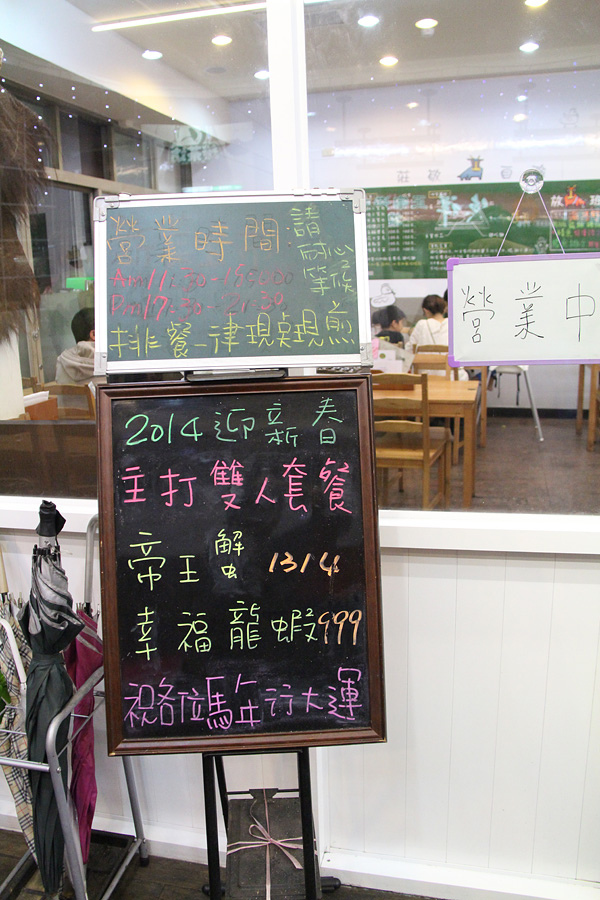 營業時間:
請
耐心
等候
Am11:30-15:00
Pm17:30-21:30
排餐一律現桌現煎
營業中
2014迎新春
主打雙人套餐
帝王蟹 1314
幸福龍蝦999
祝各位馬年行大運